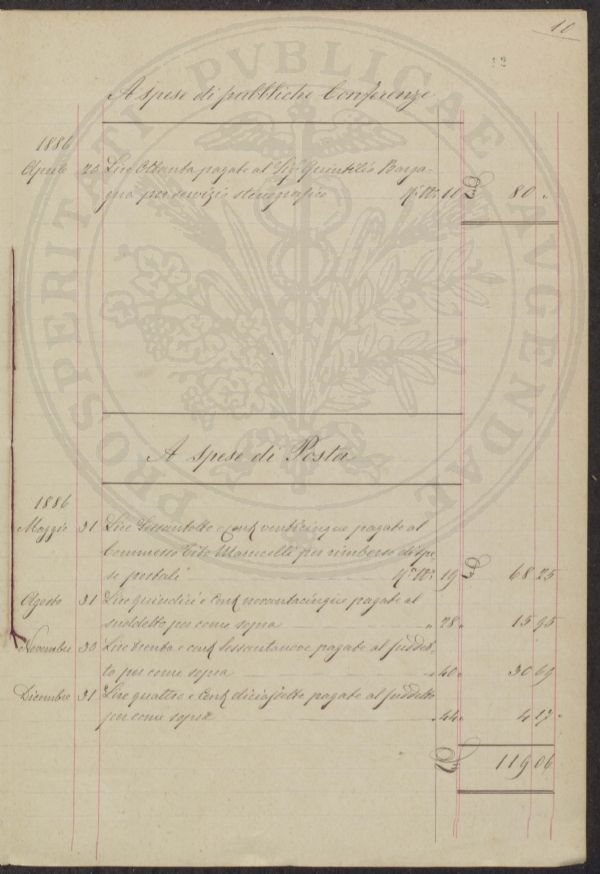 10
12
A spese di pubbliche Conferenze
1886
Aprile 20 Lire Ottanta pagate al Sigr Quintilio Barga-
gna per servizio stenografico No 18 £ 80 "
A spese di Posta
1886
Maggio 31 Lire Sessantotto e Cent venticinque pagate al
Commesso Tito Marinelli per rimborso di spe
se postali 19 £ 68 25
Agosto 31 Lire quindici e Cent novantacinque pagate al
suddetto per come sopra " 28 " 15 95
Novembre 30 Lire trenta e Cent Sessantanove pagate al suddet-
to per come sopra " 40 " 30 69
Dicembre 31 Lire quattro e Cent diciasette pagate al suddetto
per come sopra " 44 " 4 17
£ 119 06
PROSPERITATI PVBLICAE AVGENDAE